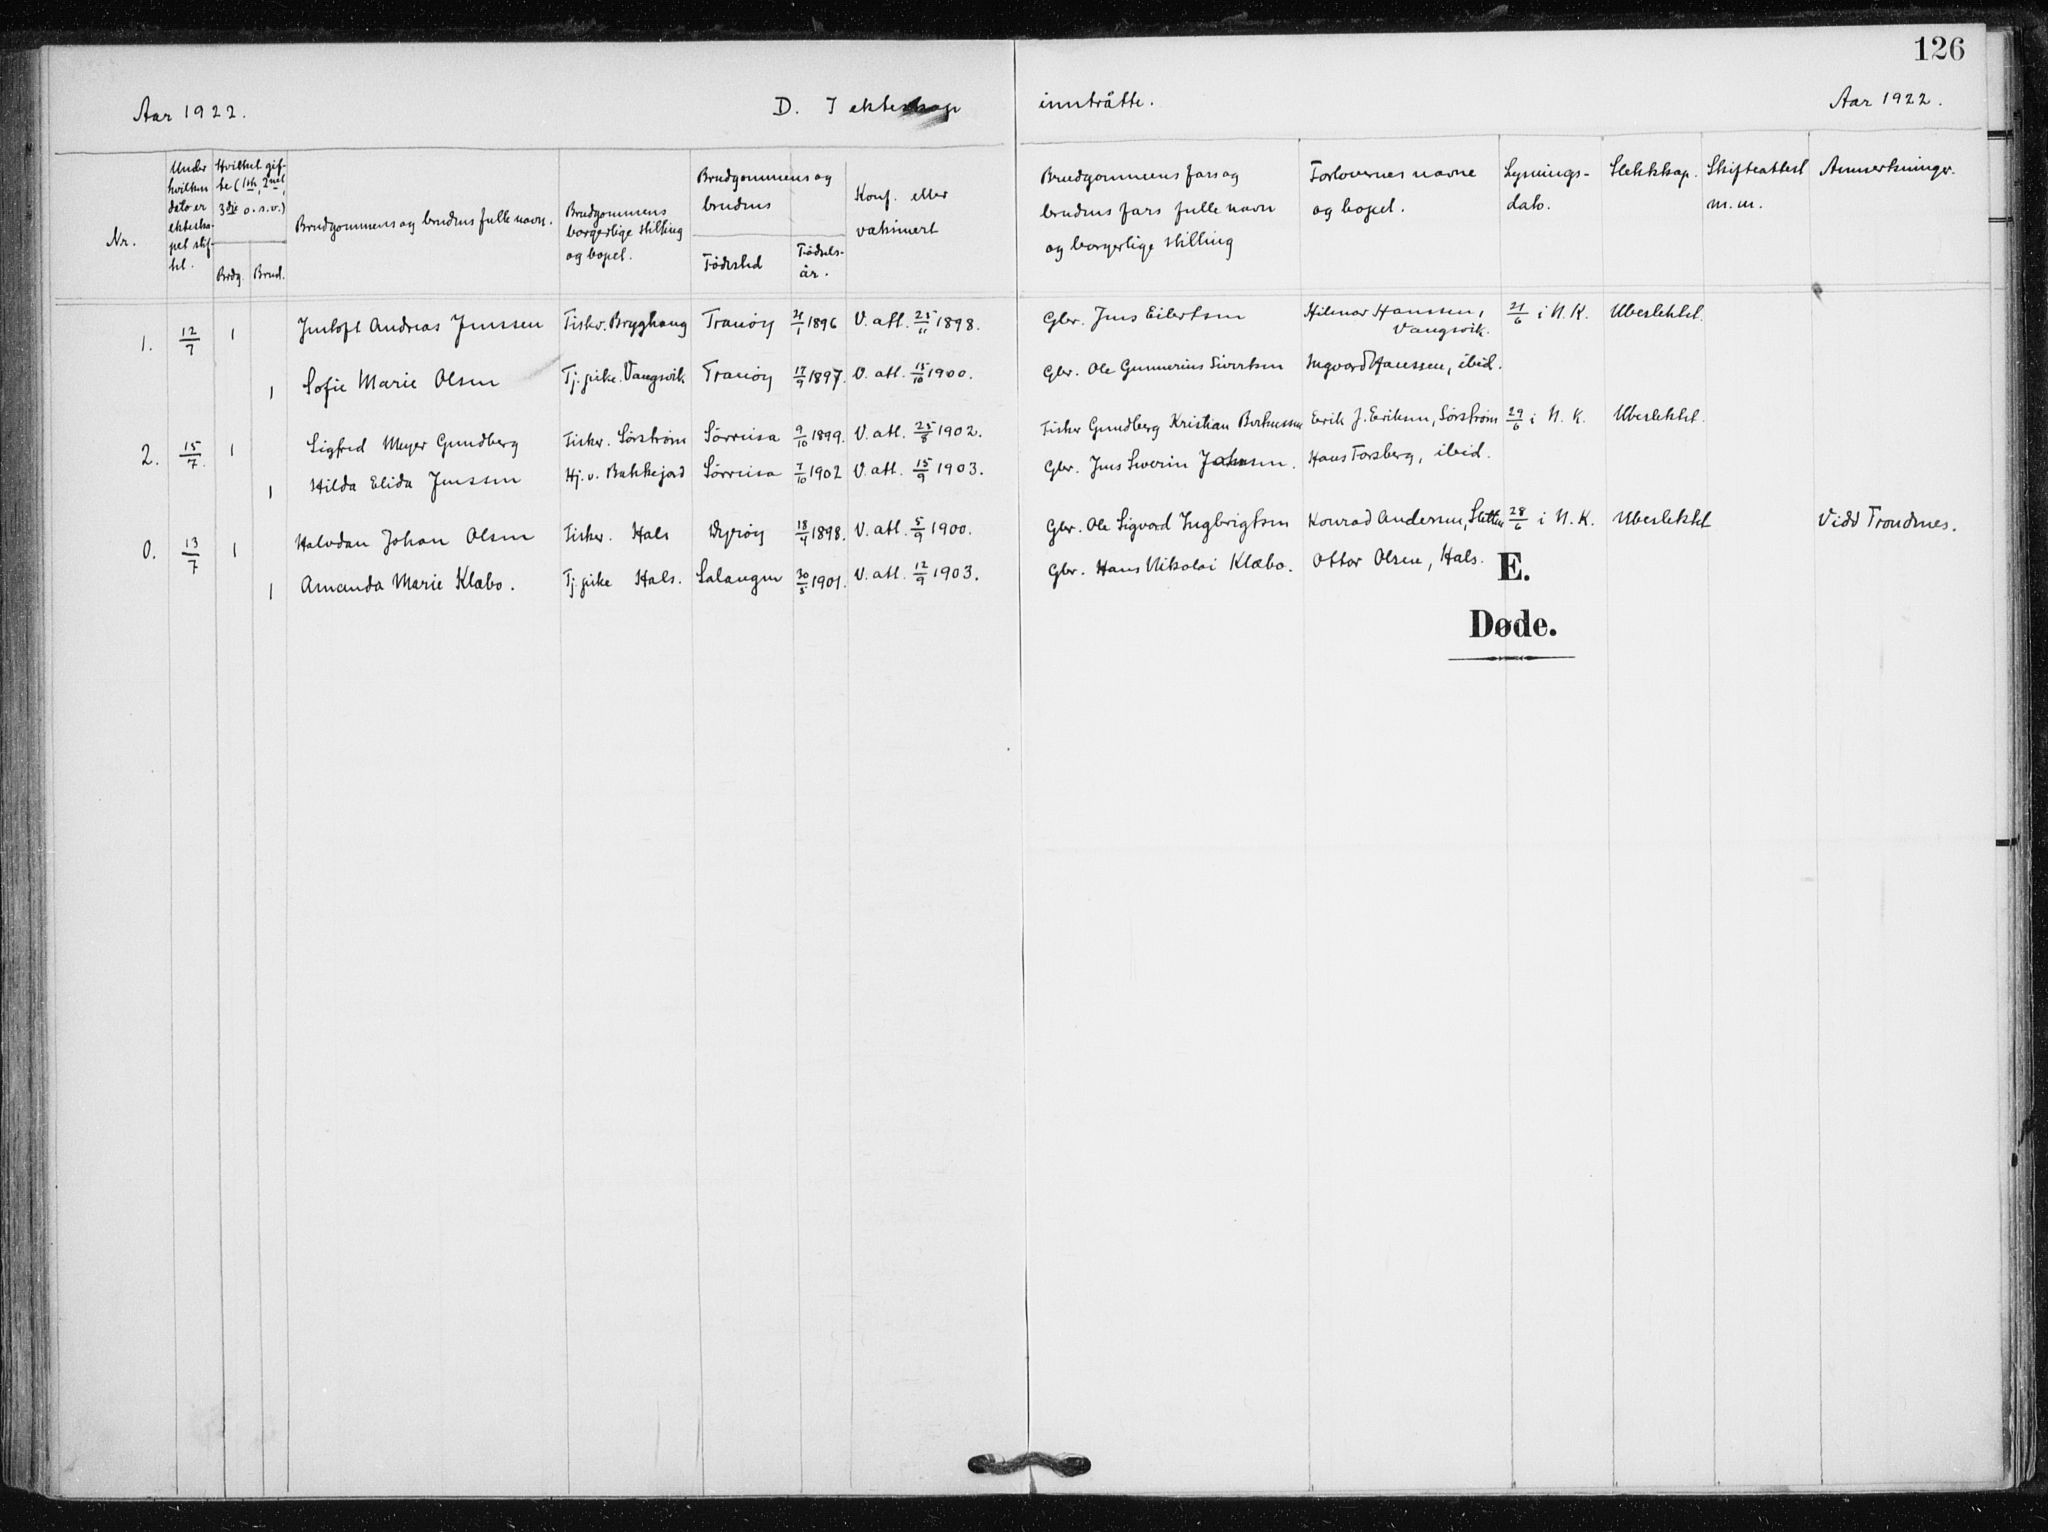 126
Aar 1922. D. I ekteskap inntråtte. Aar 1922.
Nr.
Under hvilken dato er ekteska-pet stif-tet.
Hvilket gif-te (1ste, 2net, 3dje o.s.v.)
Brdg. Brud.
Brudgommens og brudens fulle navn.
Brudgommens borgerlige stilling og bopel.
Brudgommens og brudens
Fødested Fødsels-år.
Konf. eller vaksinert
Brudgommens fars og brudens fars fulle navn og borgerlige stilling
Forlovernes navne og bopel.
Lysnings-dato.
Slektskap.
Skifteattest m.m.
Anmerkninger.
1. 12/7 1 Jentoft Andreas Jenssen Fisker. Brygghaug Tranøy 21/1 1896 V. att. 25/11 1898. Gbr. Jens Eilertsen Hilmar Hanssen, Vangsvik. 21/6 i N.K. Ubeslektet.
1 Sofie Marie Olsen Tj.pike. Vangsvik Tranøy 17/9 1897. V. att. 15/10 1900. Gbr. Ole Gunnerius Sivertsen Ingvard Hanssen, ibid.
2. 15/7. 1 Sigfred Meyer Gundberg Fisker. Sørstrøm Sørreisa 9/10 1899. V. att. 25/8 1902. Fisker Gundberg Kristian Erik J. Eriksen, Sørstrøm 29/6 i N.K. Ubeslektet.
1 Hilda Elida Jenssen Hj.v. Bakkejord Sørreisa 7/10 1902 V. att. 15/9 1903. Gbr. Jens Severin Johnsen. Hans Forsberg, ibid.
0. 13/7 1 Halvdan Johan Olsen Fisker. Hals Dyrøy 18/4 1898. V. att. 5/9 1900. Gbr. Ole Sigvard Ingbrigtsen Konrad Andersen, Sletten 28/6 i N.K. Ubeslektet Vidd Trondenes.
1 Amanda Marie Klæbo. Tj.pike Hals. Salangen 30/5 1901. V. att. 12/9 1903. Gbr. Hans Nikolai Klæbo. Ottar Olsen, Hals.
E.
Døde.